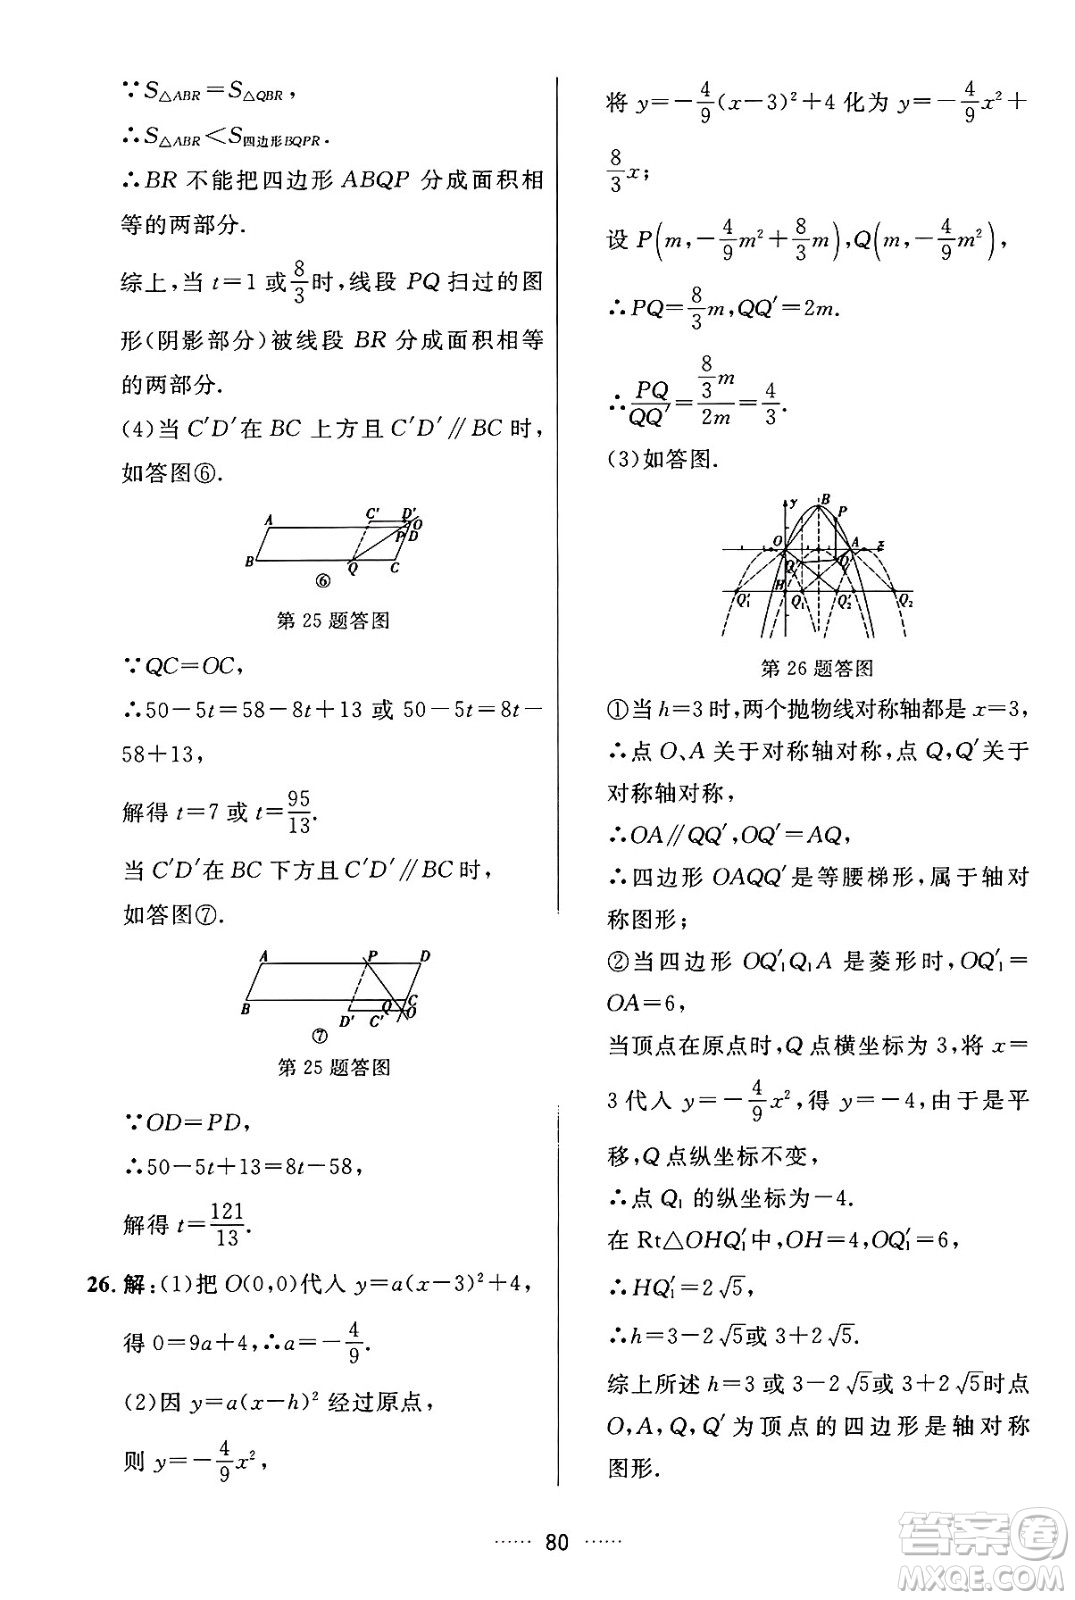 ∵S△ABR=S△QBR,
∴S△ABR<S四边形BQPR.
∴BR 不能把四边形 ABQP 分成面积相
等的两部分.
综上,当 t=1 或8/3时,线段 PQ 扫过的图
形(阴影部分)被线段 BR 分成面积相等
的两部分.
(4)当 C′D′在 BC 上方且 C′D′∥BC 时,
如答图⑥.
A C′ D′ O P D B Q C
⑥
第 25 题答图
∵QC=OC,
∴50-5t=58-8t+13 或 50-5t=8t-
58+13,
解得 t=7 或 t=95/13.
当 C′D′在 BC 下方且 C′D′∥BC时,
如答图⑦.
A P D B Q C D′ C′ O
⑦
第 25 题答图
∵OD=PD,
∴50-5t+13=8t-58,
解得 t=121/13.
26. 解:(1)把 O(0,0)代入 y=a(x-3)²+4,
得 0=9a+4,∴a=-4/9.
(2)因 y=a(x-h)² 经过原点,
则 y=-4/9x²,
将 y=-4/9(x-3)²+4 化为 y=-4/9x²+
8/3x;
设 P(m,-4/9m²+8/3m),Q(m,-4/9m²),
∴PQ=8/3m,QQ′=2m.
∴PQ/QQ′=8/3m/2m=4/3.
(3)如答图.
y B P O A x Q′ Q H Q′₁ Q₁ Q′₂ Q₂
第 26 题答图
①当 h=3 时,两个抛物线对称轴都是 x=3,
∴点 O、A 关于对称轴对称,点 Q,Q′关于
对称轴对称,
∴OA∥QQ′,OQ′=AQ,
∴四边形 OAQQ′是等腰梯形,属于轴对
称图形;
②当四边形 OQ′₁Q₁A 是菱形时,OQ′₁=
OA=6,
当顶点在原点时,Q 点横坐标为 3,将 x=
3 代入 y=-4/9x²,得 y=-4,由于是平
移,Q 点纵坐标不变,
∴点 Q₁ 的纵坐标为-4.
在 Rt△OHQ′₁中,OH=4,OQ′₁=6,
∴HQ′₁=2√5.
∴h=3-2√5或 3+2√5.
综上所述 h=3 或 3-2√5或 3+2√5时点
O,A,Q,Q′ 为顶点的四边形是轴对称
图形.
…… 80 ……
答案卷
MXQE.COM